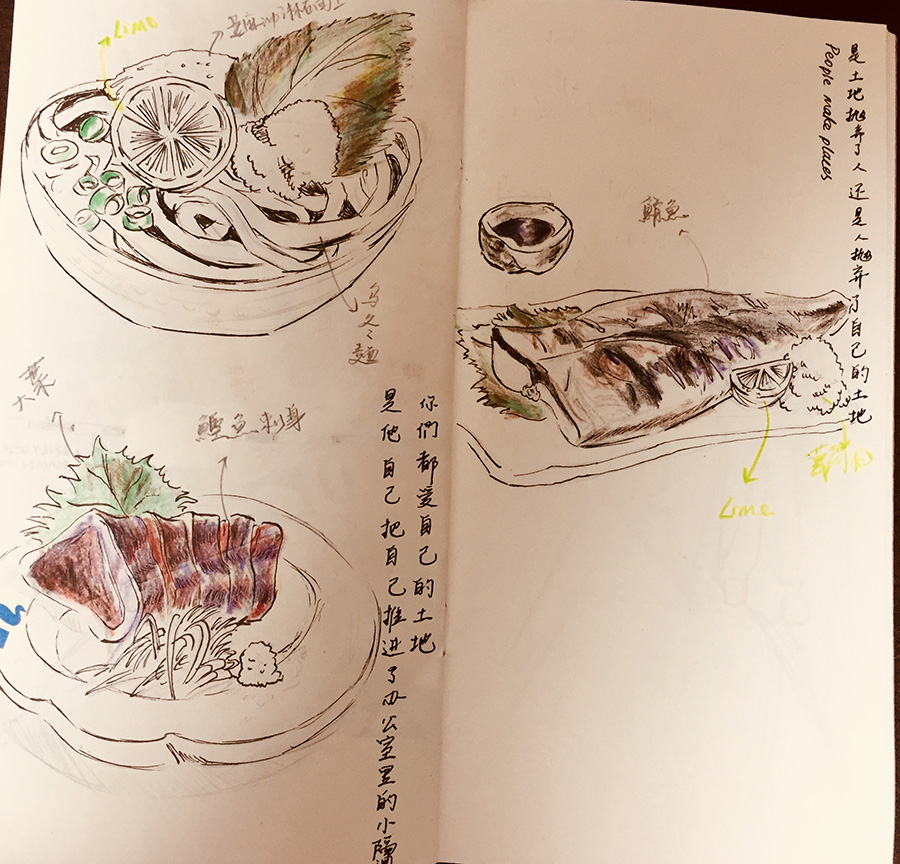 Lime
乌冬麵
大葉
鰹魚刺身
你們都爱自己的土地
是他自己把自己推進了办公室里的小隔
是土地抛弃了人还是人抛弃了自己的土地
People make places
鯖魚
Lime